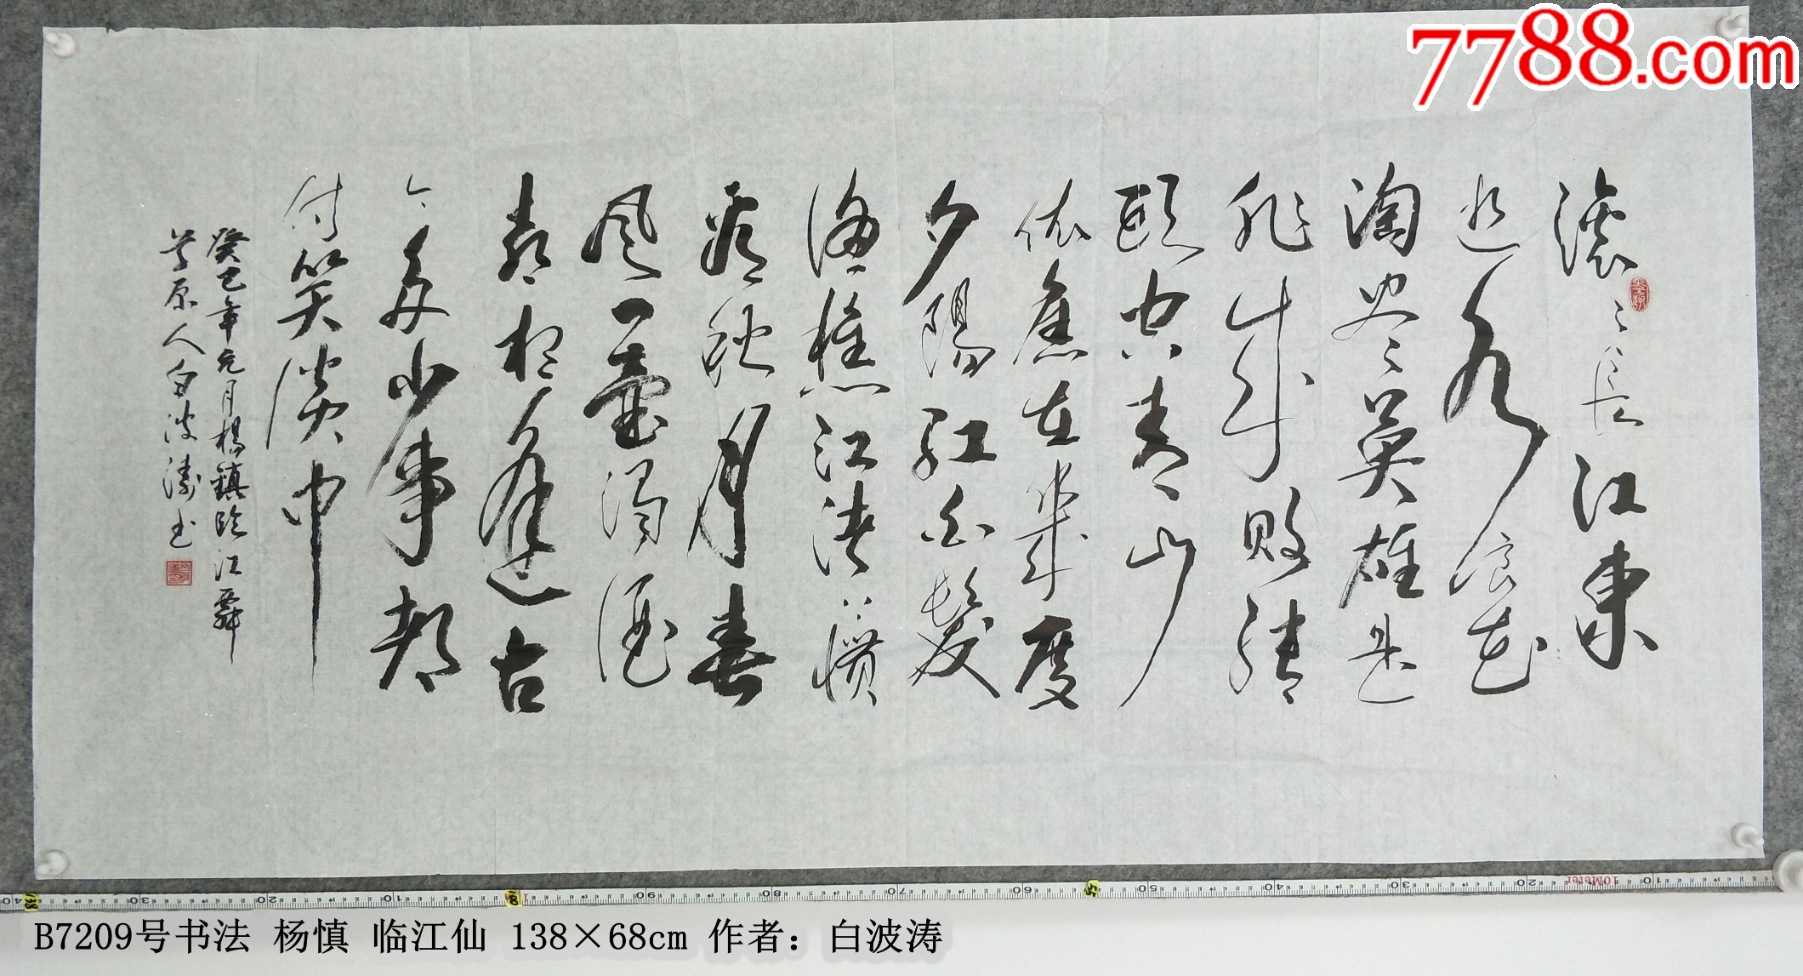 滚々长江东
逝水浪花
淘尽英雄是
非成败转
頭空青山
依舊在幾度
夕陽紅白髮
漁樵江渚上惯
看秋月春
风一壶濁酒
喜相逢古
今多少事都
付笑谈中
癸巳年元月楊鎮临江
草原人白波涛书
7788.com
B7209号书法 杨慎 临江仙 138×68cm 作者：白波涛